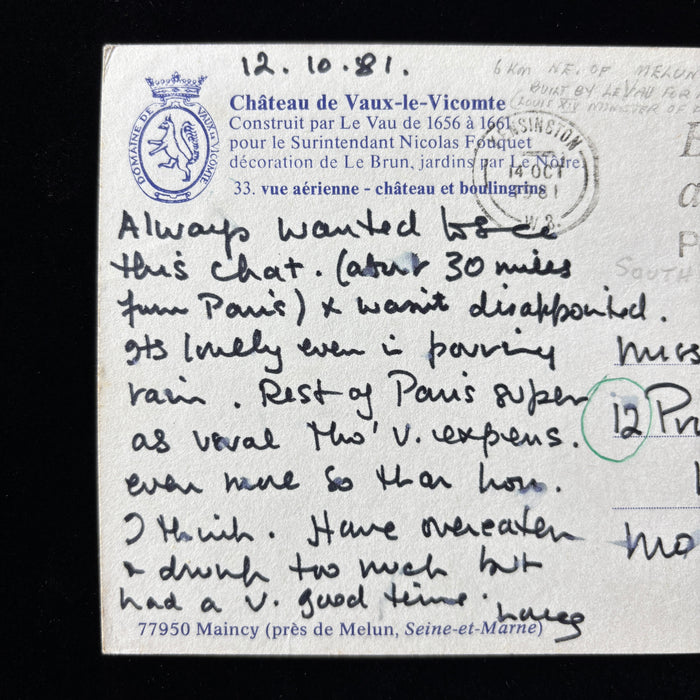 12.10.81.
6 KM NE. OF MELUN
BUILT BY LE VAU FOR
LOUIS XIV MINISTER OF
DOMAINE DE VAUX-LE-VICOMTE
Château de Vaux-le-Vicomte
Construit par Le Vau de 1656 à 1661
pour le Surintendant Nicolas Fouquet
décoration de Le Brun, jardins par Le Nôtre
33. vue aérienne - château et boulingrins
KENSINGTON
14 OCT
1981
W8.
SOUTH
Always wanted to see
this chat. (about 30 miles
from Paris) & wasn't disappointed.
Its lovely even in pouring
rain. Rest of Paris super
as usual tho' v. expens.
even more so than
I think. Have overeaten
& drunk too much but
had a v. good time.
Miss
12 Pr
77950 Maincy (près de Melun, Seine-et-Marne)